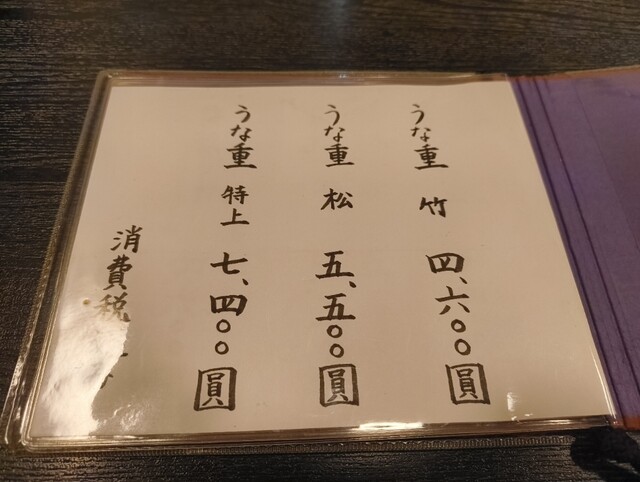 うな重 竹 四、六〇〇圓
うな重 松 五、五〇〇圓
うな重 特上 七、四〇〇圓
消費税